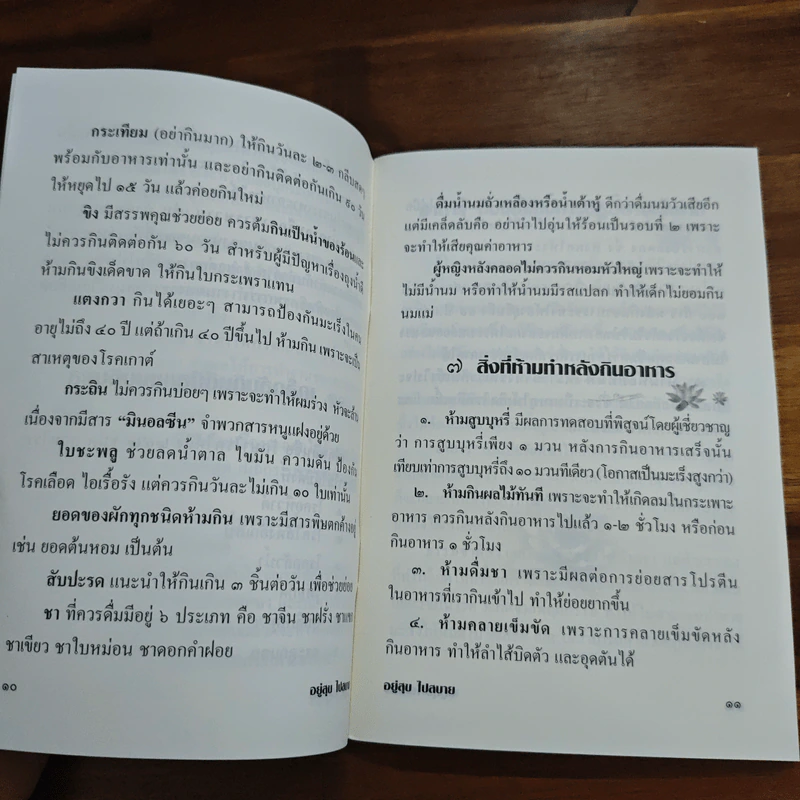 กระเทียม (อย่ากินมาก) ให้กินวันละ ๒-๓ กลีบสดๆ
พร้อมกับอาหารเท่านั้น และอย่ากินติดต่อกันเกิน ๙๐ วัน
ให้หยุดไป ๑๕ วัน แล้วค่อยกินใหม่
ขิง มีสรรพคุณช่วยย่อย ควรต้มกินเป็นน้ำของร้อนและ
ไม่ควรกินติดต่อกัน ๖๐ วัน สำหรับผู้มีปัญหาเรื่องถุงน้ำดี
ห้ามกินขิงเด็ดขาด ให้กินใบกระเพราแทน
แตงกวา กินได้เยอะๆ สามารถป้องกันมะเร็งในคน
อายุไม่ถึง ๔๐ ปี แต่ถ้าเกิน ๔๐ ปีขึ้นไป ห้ามกิน เพราะจะเป็น
สาเหตุของโรคเกาต์
กระถิน ไม่ควรกินบ่อยๆ เพราะจะทำให้ผมร่วง หัวจะล้าน
เนื่องจากมีสาร “มินอลซีน” จำพวกสารหนูแฝงอยู่ด้วย
ใบชะพลู ช่วยลดน้ำตาล ไขมัน ความดัน ป้องกัน
โรคเลือด ไอเรื้อรัง แต่ควรกินวันละไม่เกิน ๑๐ ใบเท่านั้น
ยอดของผักทุกชนิดห้ามกิน เพราะมีสารพิษตกค้างอยู่
เช่น ยอดต้นหอม เป็นต้น
สับปะรด แนะนำให้กินเกิน ๓ ชิ้นต่อวัน เพื่อช่วยย่อย
ชา ที่ควรดื่มมีอยู่ ๖ ประเภท คือ ชาจีน ชาฝรั่ง
ชาเขียว ชาใบหม่อน ชาดอกคำฝอย
๑๐
อยู่สุข ไปสบาย
ดื่มน้ำนมถั่วเหลืองหรือน้ำเต้าหู้ ดีกว่าดื่มนมวัวเสียอีก
แต่มีเคล็ดลับคือ อย่านำไปอุ่นให้ร้อนเป็นรอบที่ ๒ เพราะ
จะทำให้เสียคุณค่าอาหาร
ผู้หญิงหลังคลอดไม่ควรกินหอมหัวใหญ่ เพราะจะทำให้
ไม่มีน้ำนม หรือทำให้น้ำนมมีรสแปลก ทำให้เด็กไม่ยอมกิน
นมแม่
๗ สิ่งที่ห้ามทำหลังกินอาหาร
๑. ห้ามสูบบุหรี่ มีผลการทดสอบที่พิสูจน์โดยผู้เชี่ยวชาญ
ว่า การสูบบุหรี่เพียง ๑ มวน หลังการกินอาหารเสร็จนั้น
เทียบเท่าการสูบบุหรี่ถึง ๑๐ มวนทีเดียว (โอกาสเป็นมะเร็งสูงกว่า)
๒. ห้ามกินผลไม้ทันที เพราะจะทำให้เกิดลมในกระเพาะ
อาหาร ควรกินหลังกินอาหารไปแล้ว ๑-๒ ชั่วโมง หรือก่อน
กินอาหาร ๑ ชั่วโมง
๓. ห้ามดื่มชา เพราะมีผลต่อการย่อยสารโปรตีน
ในอาหารที่เรากินเข้าไป ทำให้ย่อยยากขึ้น
๔. ห้ามคลายเข็มขัด เพราะการคลายเข็มขัดหลัง
กินอาหาร ทำให้ลำไส้บิดตัว และอุดตันได้
อยู่สุข ไปสบาย
๑๑